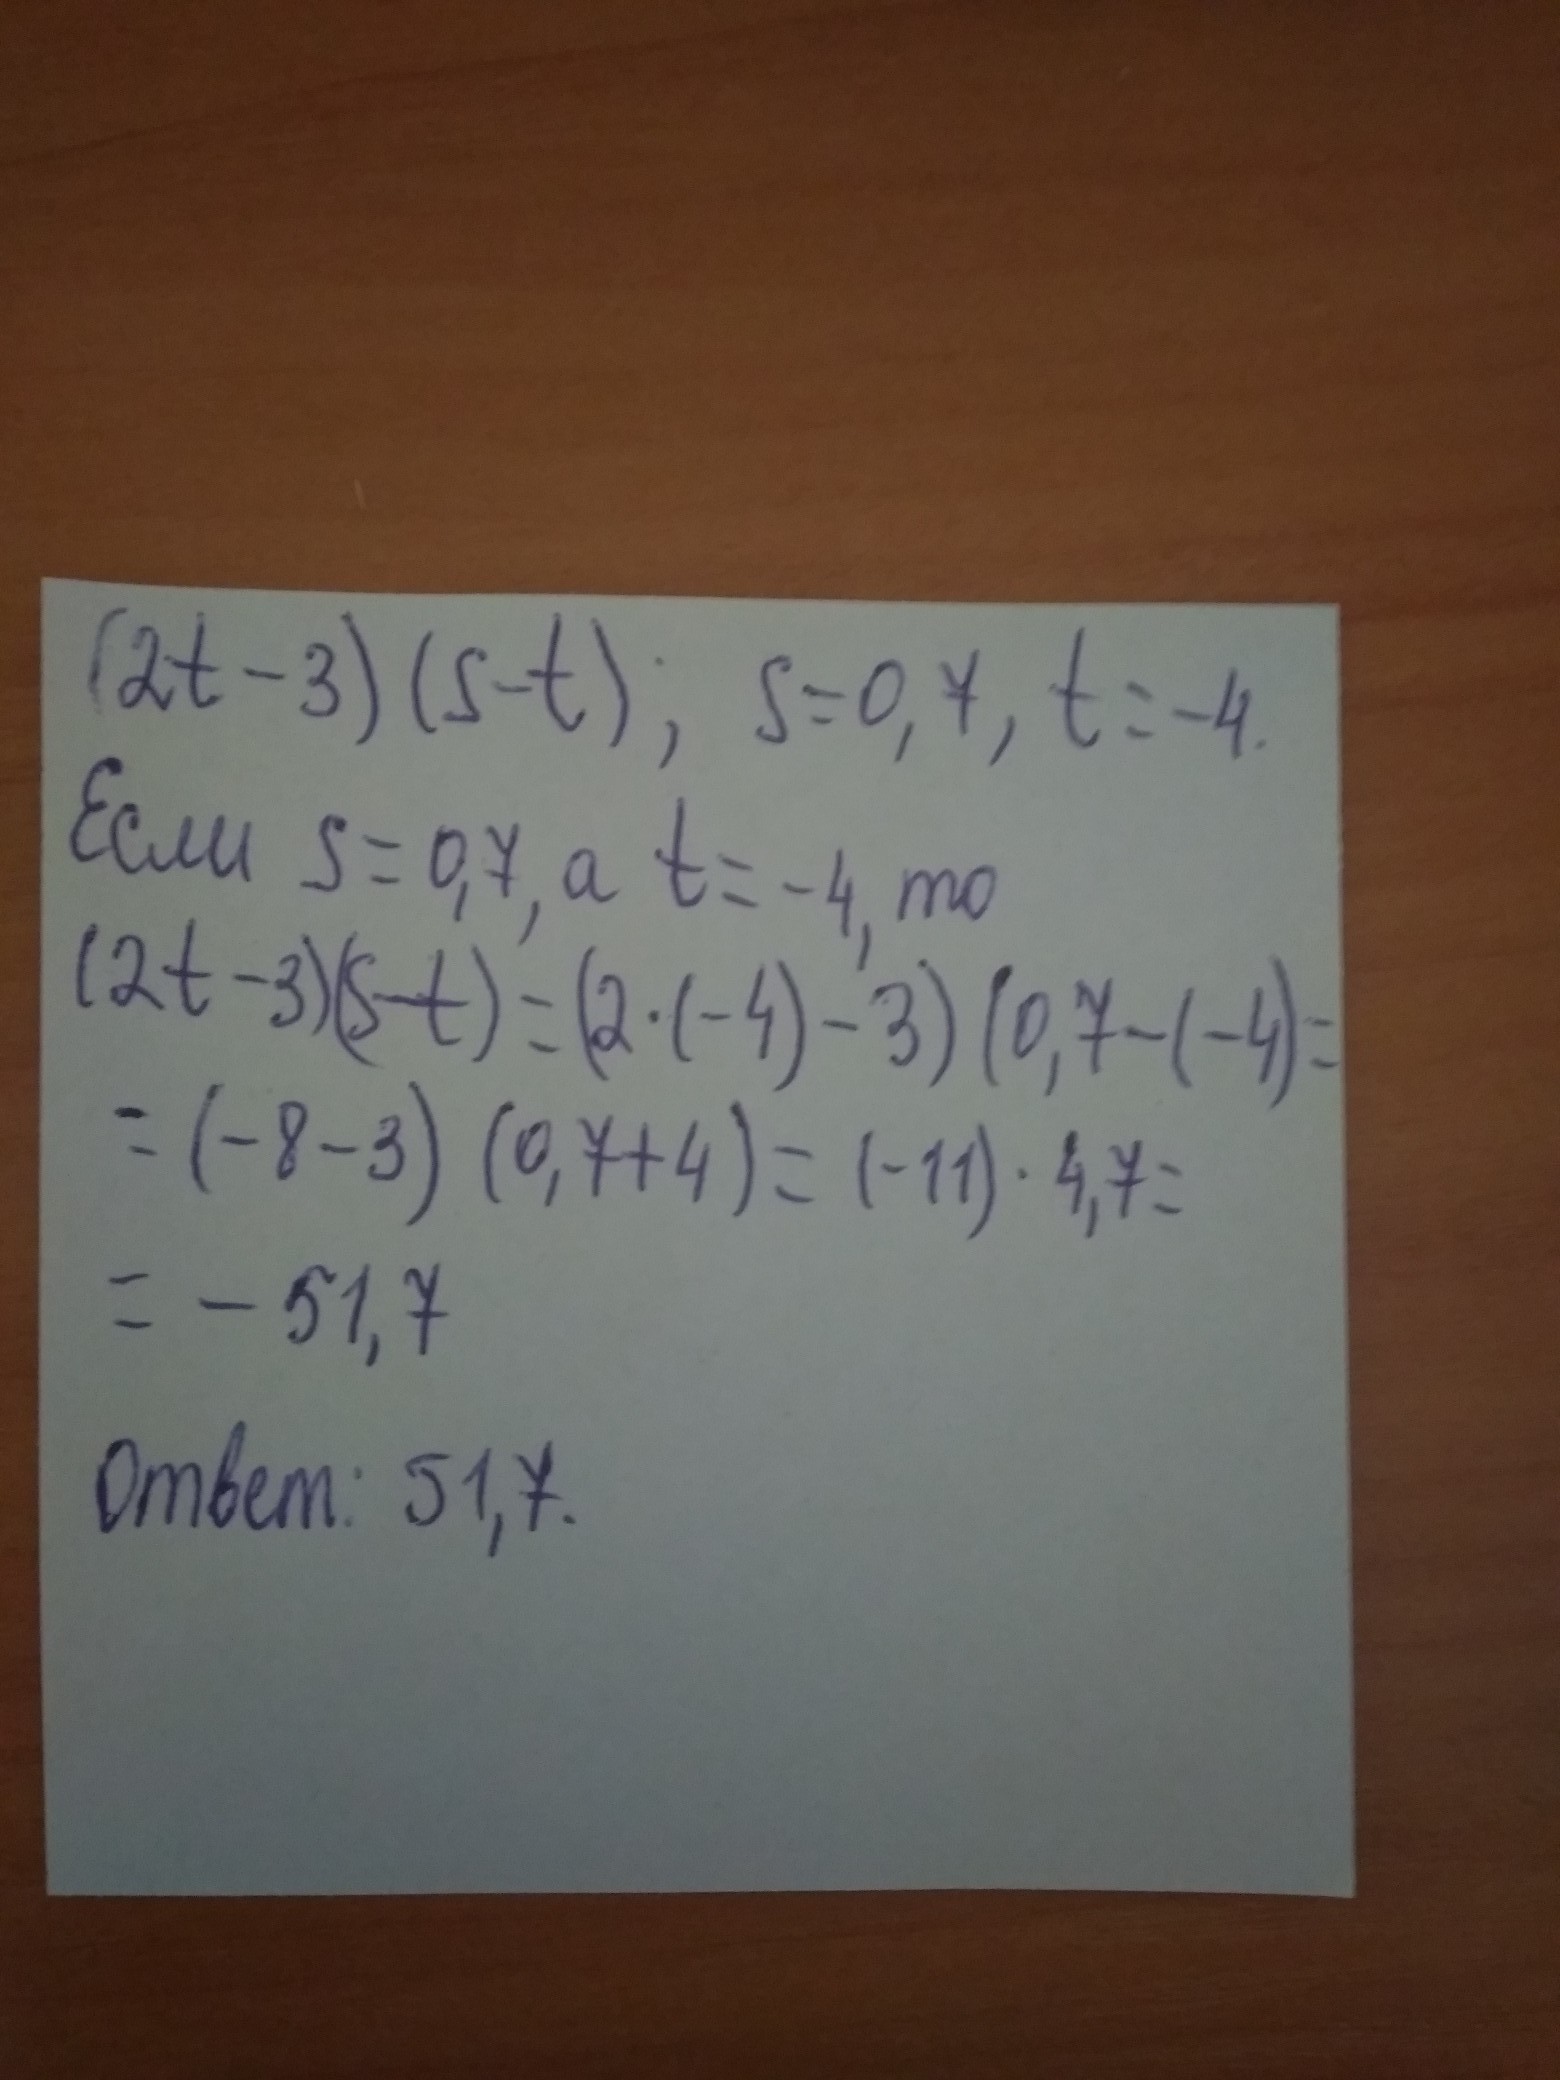 (2t-3)(s-t); s=0,7, t=-4.
Если s=0,7, а t=-4, то
(2t-3)(s-t)=(2·(-4)-3)(0,7-(-4)=
=(-8-3)(0,7+4)=(-11)·4,7=
=-51,7
Ответ: 51,7.